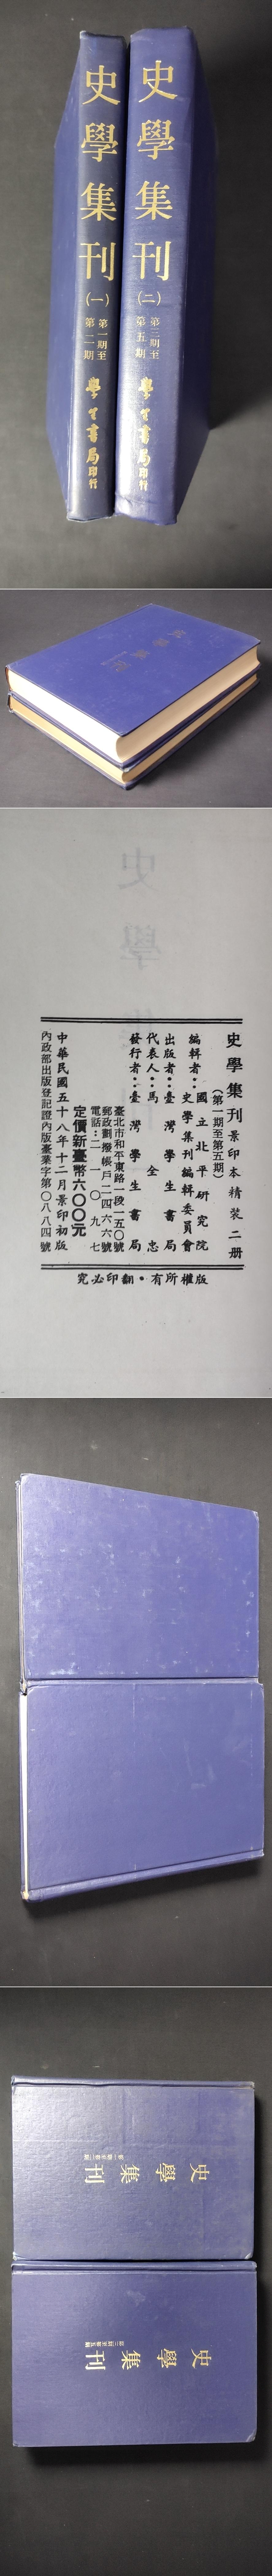 史學集刊
(一)
第一期至
第二期
學生書局印行
史學集刊
(二)
第三期至
第五期
學生書局印行
史學集刊景印本精裝二册
(第一期至第五期)
編輯者：國立北平研究院
史學集刊編輯委員會
出版者：臺灣學生書局
代表人：馬全忠
發行者：臺灣學生書局
臺北市和平東路一段一五〇號
郵政劃撥帳戶二四六六號
定價新臺幣六〇〇元
中華民國五十八年十二月景印初版
內政部出版登記證內版臺業字第〇八八四號
究必印翻・有所權版
史學集刊
史學集刊